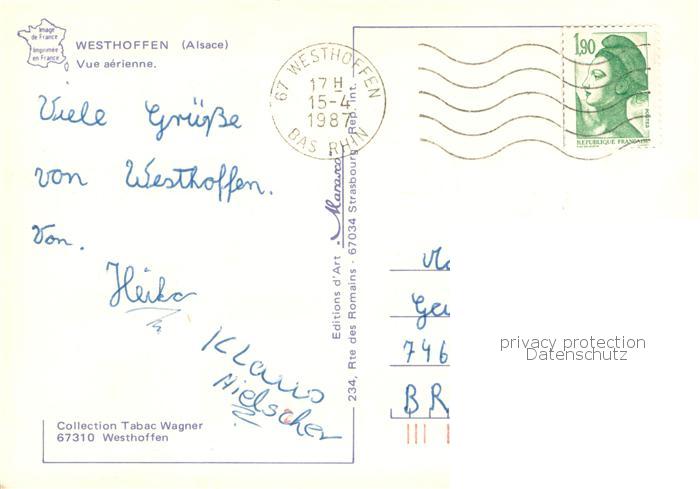 Image
de France
Imprimée
en France
WESTHOFFEN (Alsace)
Vue aérienne.
67 WESTHOFFEN
17 H
15-4
1987
BAS RHIN
1,90
POSTES
REPUBLIQUE FRANÇAISE
Viele Grüße
von Westhoffen.
Von.
Heiko
Klaus
Hielscher
Editions d'Art
234, Rte des Romains - 67034 Strasbourg Rep. Int.
746
BR
privacy protection
Datenschutz
Collection Tabac Wagner
67310 Westhoffen